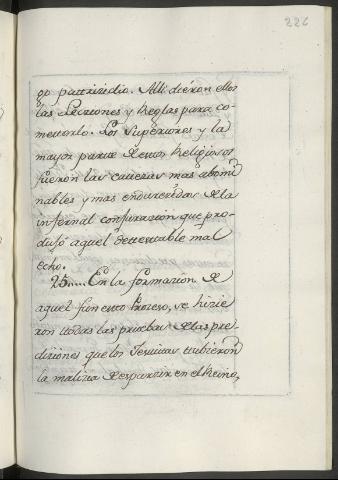 226
go parrizidio. Alli diéron ellos
las Lecciones y Reglas para co-
meterlo. Los Superiores y la
mayor parte de estos Religiosos
fueron las cavezas mas abomi
nables y mas endurezidas de la
infernal conjurazion que pro-
dujo aquel detestable mal
echo.
25.... En la formazion de
aquel funesto Prozeso, se hizie
ron todas las pruebas de las pre-
diziones que los Jesuitas tubieron
la malizia de esparzir en el Reino,